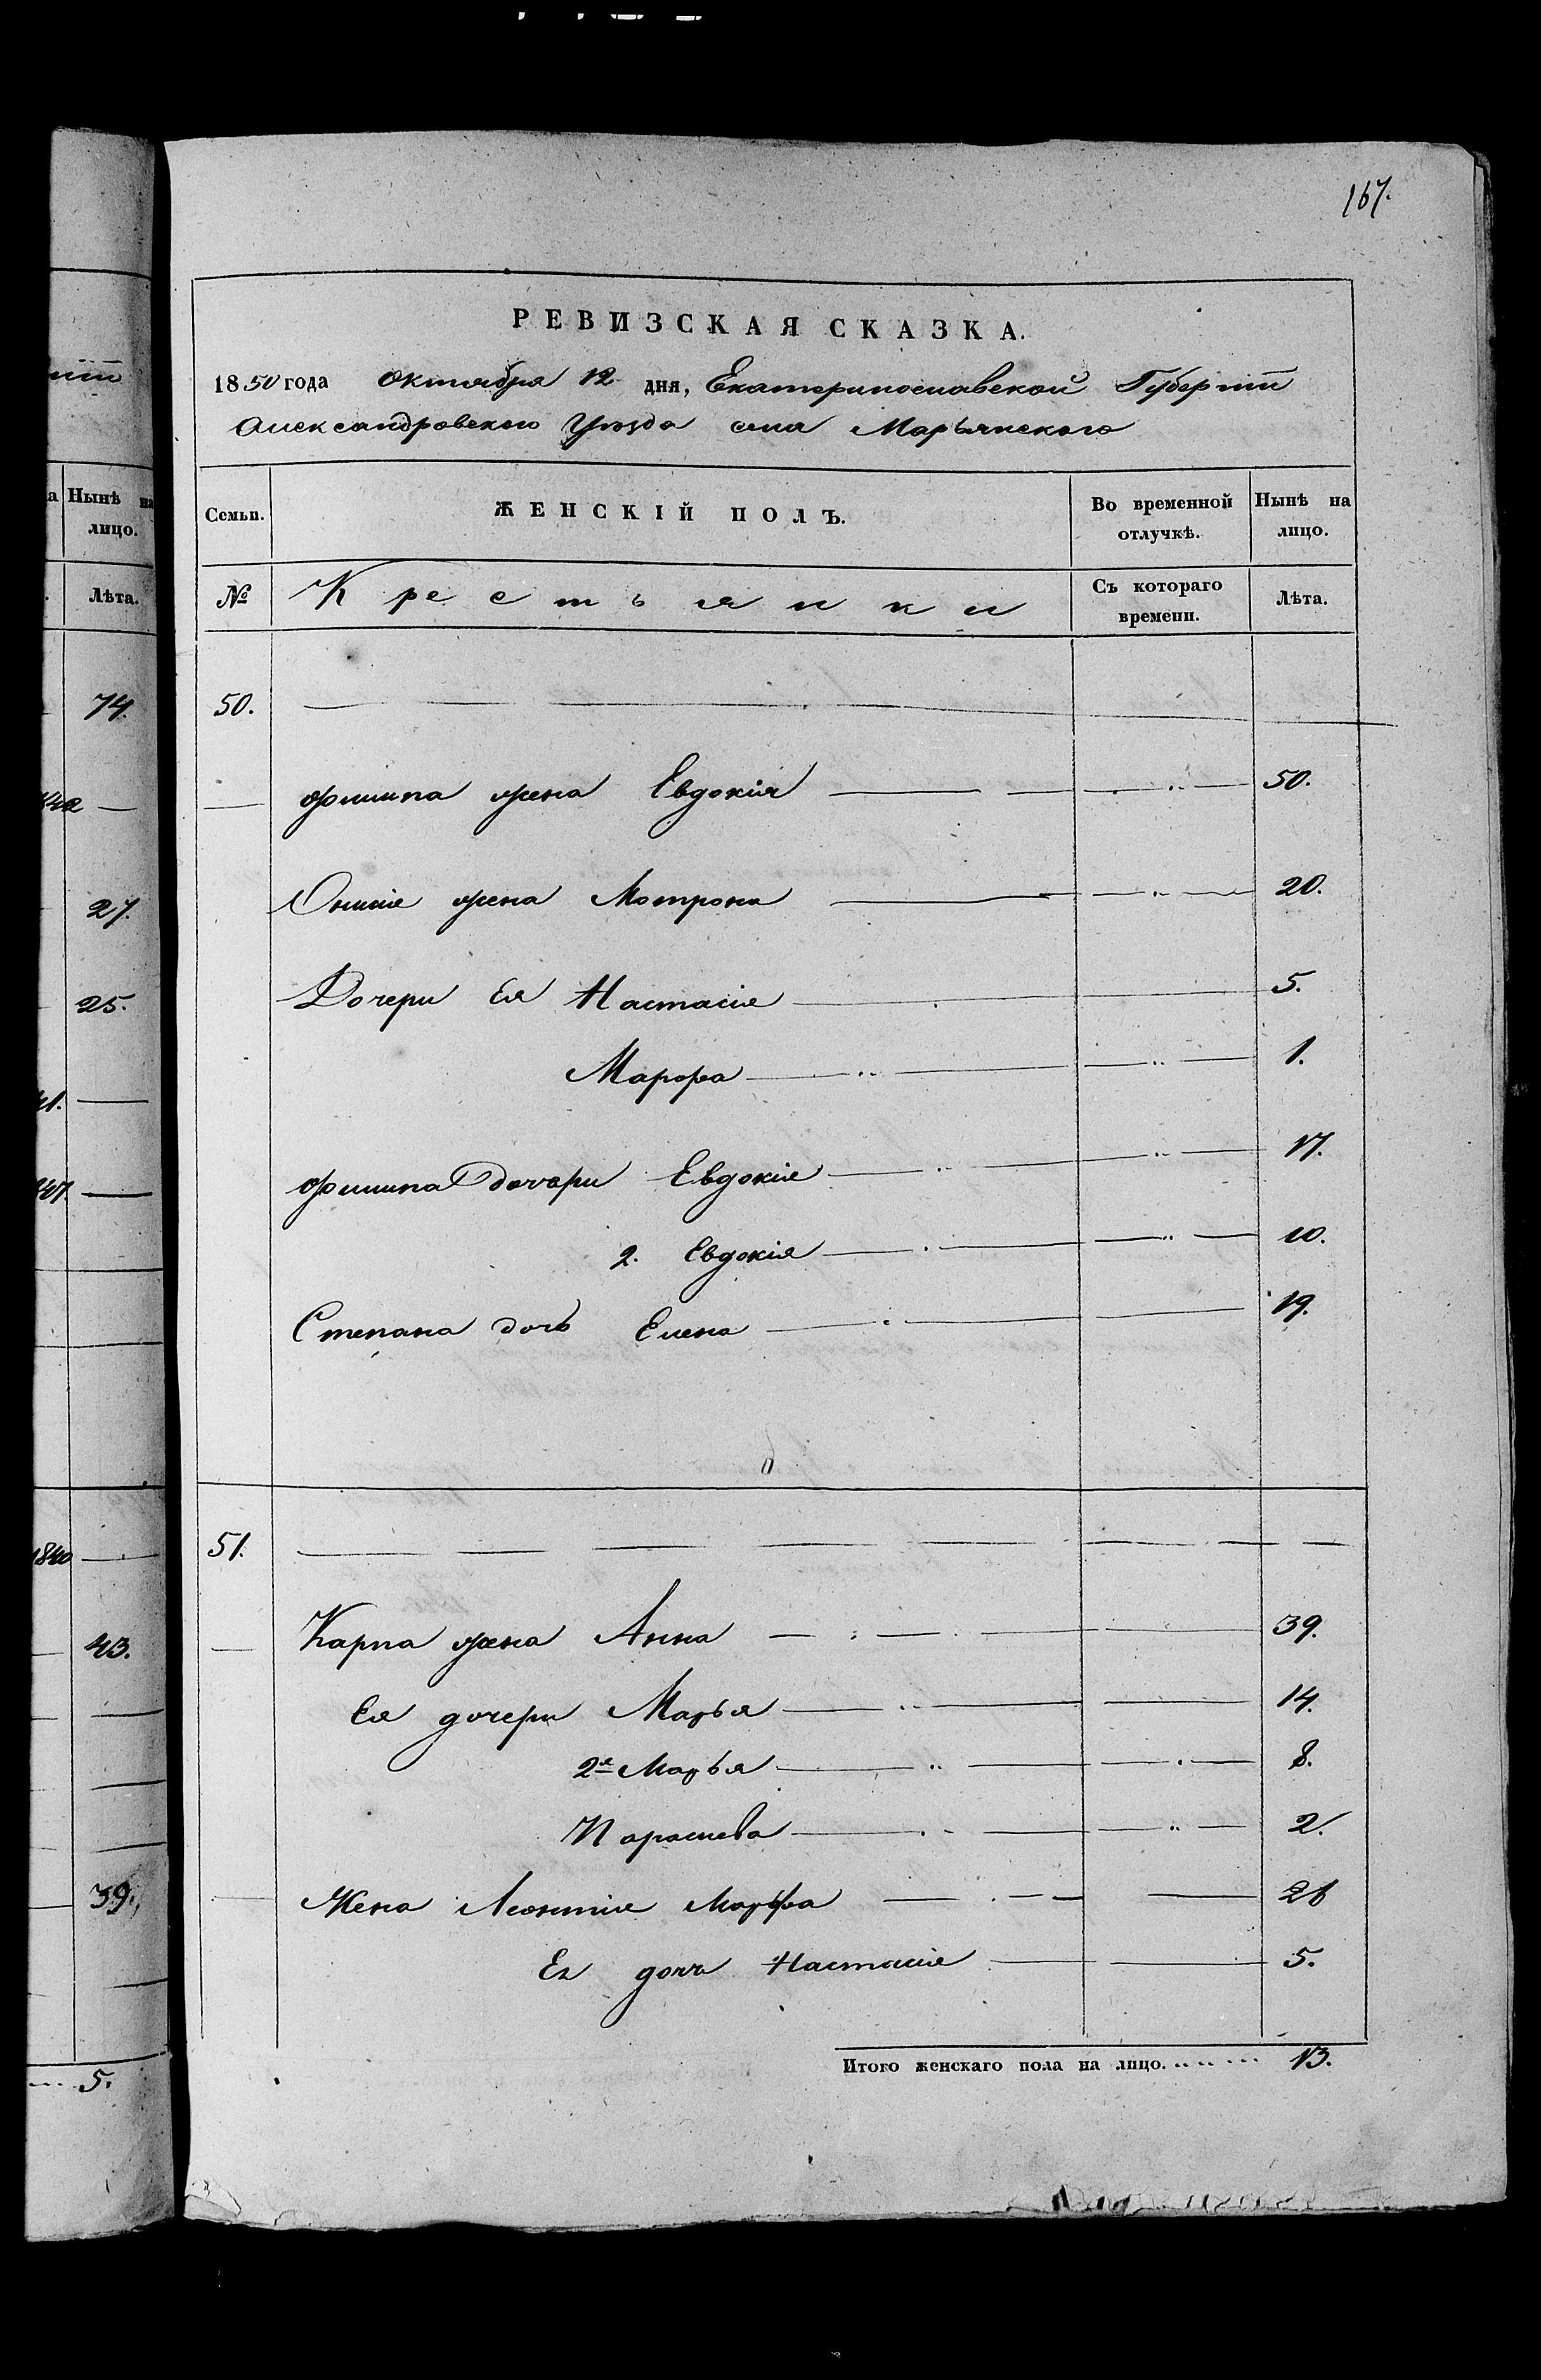 167.
РЕВИЗСКАЯ СКАЗКА.
1850 года Октября 12 дня, Екатеринославской Губерніи
Александровского Уезда села Марьянского
Семьи. ЖЕНСКІЙ ПОЛЪ. Во временной отлучкѣ. Нынѣ на лицо.
№ Крестьянки Съ котораго времени. Лѣта.
50.
Филипа жена Евдокія 50.
Онисія жена Мотрона 20.
Дочери Ея Настасія 5.
Марфа 1.
Филипа дочери Евдокія 17.
2. Евдокія 10.
Степана дочь Елена 19.
51.
Карпа жена Анна 39.
Ея дочери Марья 14.
2я Марья 8.
Параскева 2.
Жена Леонтія Марфа 26
Ея дочь Настасія 5.
Итого женскаго пола на лицо. 13.
Нынѣ на лицо.
Лѣта.
74.
27.
25.
41.
1840
43.
39.
5.